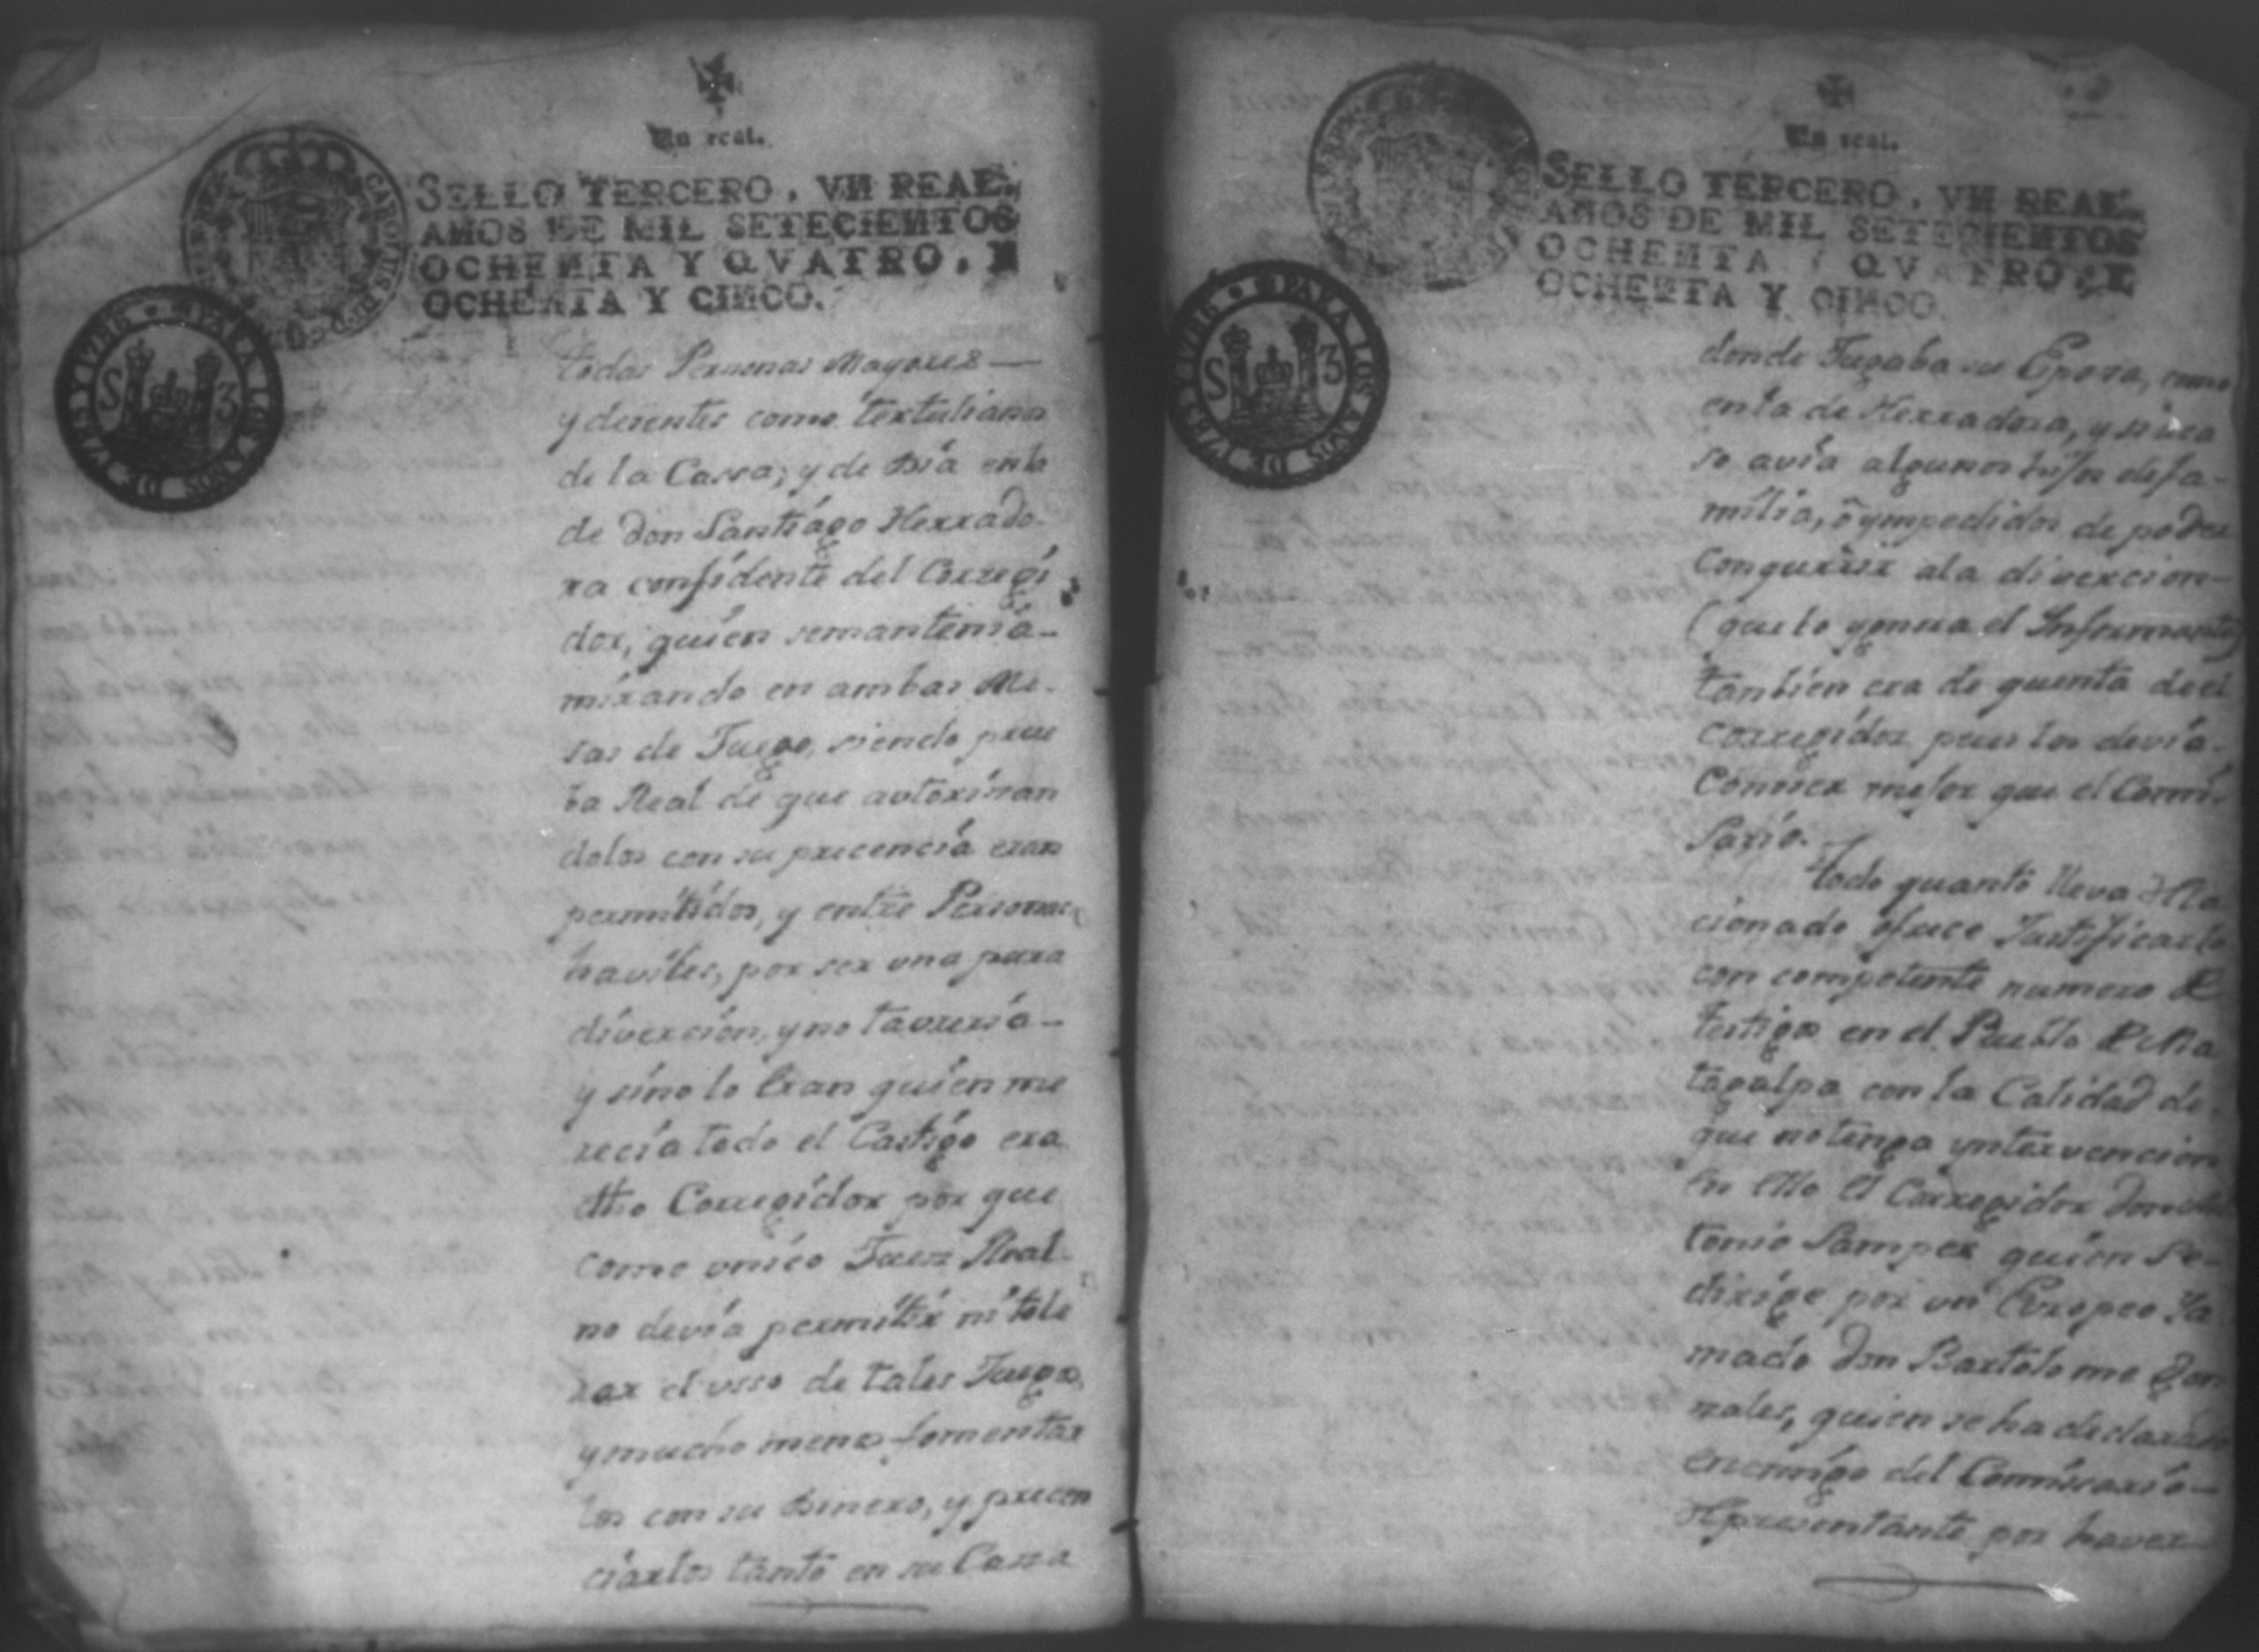 Un real.
SELLO TERCERO, VN REAL,
AÑOS DE MIL SETECIENTOS
OCHENTA Y QVATRO, Y
OCHENTA Y CINCO.
PARA LOS AÑOS DE 1787 Y 1786
S 3
todas Personas Mayores —
y desentes como tertulianos
de la Cassa; y de Dia en la
de Don Santiago Herrado-
ra confidente del Corregi
dor, quien semantenia-
mirando en ambas Me-
sas de Juego, siendo prue
ba Real de que autorisan
dolos con su precencia eran
permitidos, y entre Personas
haviles, por ser una pura
divercion, y no tavureria-
y sino lo Eran quien me
recia todo el Castigo era
dho Corregidor por que
como unico Juez Real
no devia permitir ni tole
rar el usso de tales Juegos,
y mucho menos fomentar
los con su Dinero, y precen
ciarlos tanto en su Cassa
Un real.
SELLO TERCERO, VN REAL,
AÑOS DE MIL SETECIENTOS
OCHENTA Y QVATRO, Y
OCHENTA Y CINCO.
PARA LOS AÑOS DE 1787 Y 1786
S 3
donde Jugaba su Eposa, como
en la de Herradora, y si aca
so avia algunos hijos defa-
milia, ô ympedidos de poder
Conqurrir ala divercion-
(que lo ygnora el Informante)
tanbien era de quenta de el
corregidor pues los devia-
Conocer mejor que el Comi-
sario.
Todo quanto lleva Rela
cionado ofrece Justificarlo
con competente numero de
testigos en el Pueblo de Ma
tagalpa con la Calidad de-
que no tenga yntervencion
en Ello el Corregidor Don An
tonio Samper quien se-
dirige por un Europeo lla
mado Don Bartolome Gon
zales, quien se ha declarado
enemigo del Comisario-
Representante por haver-